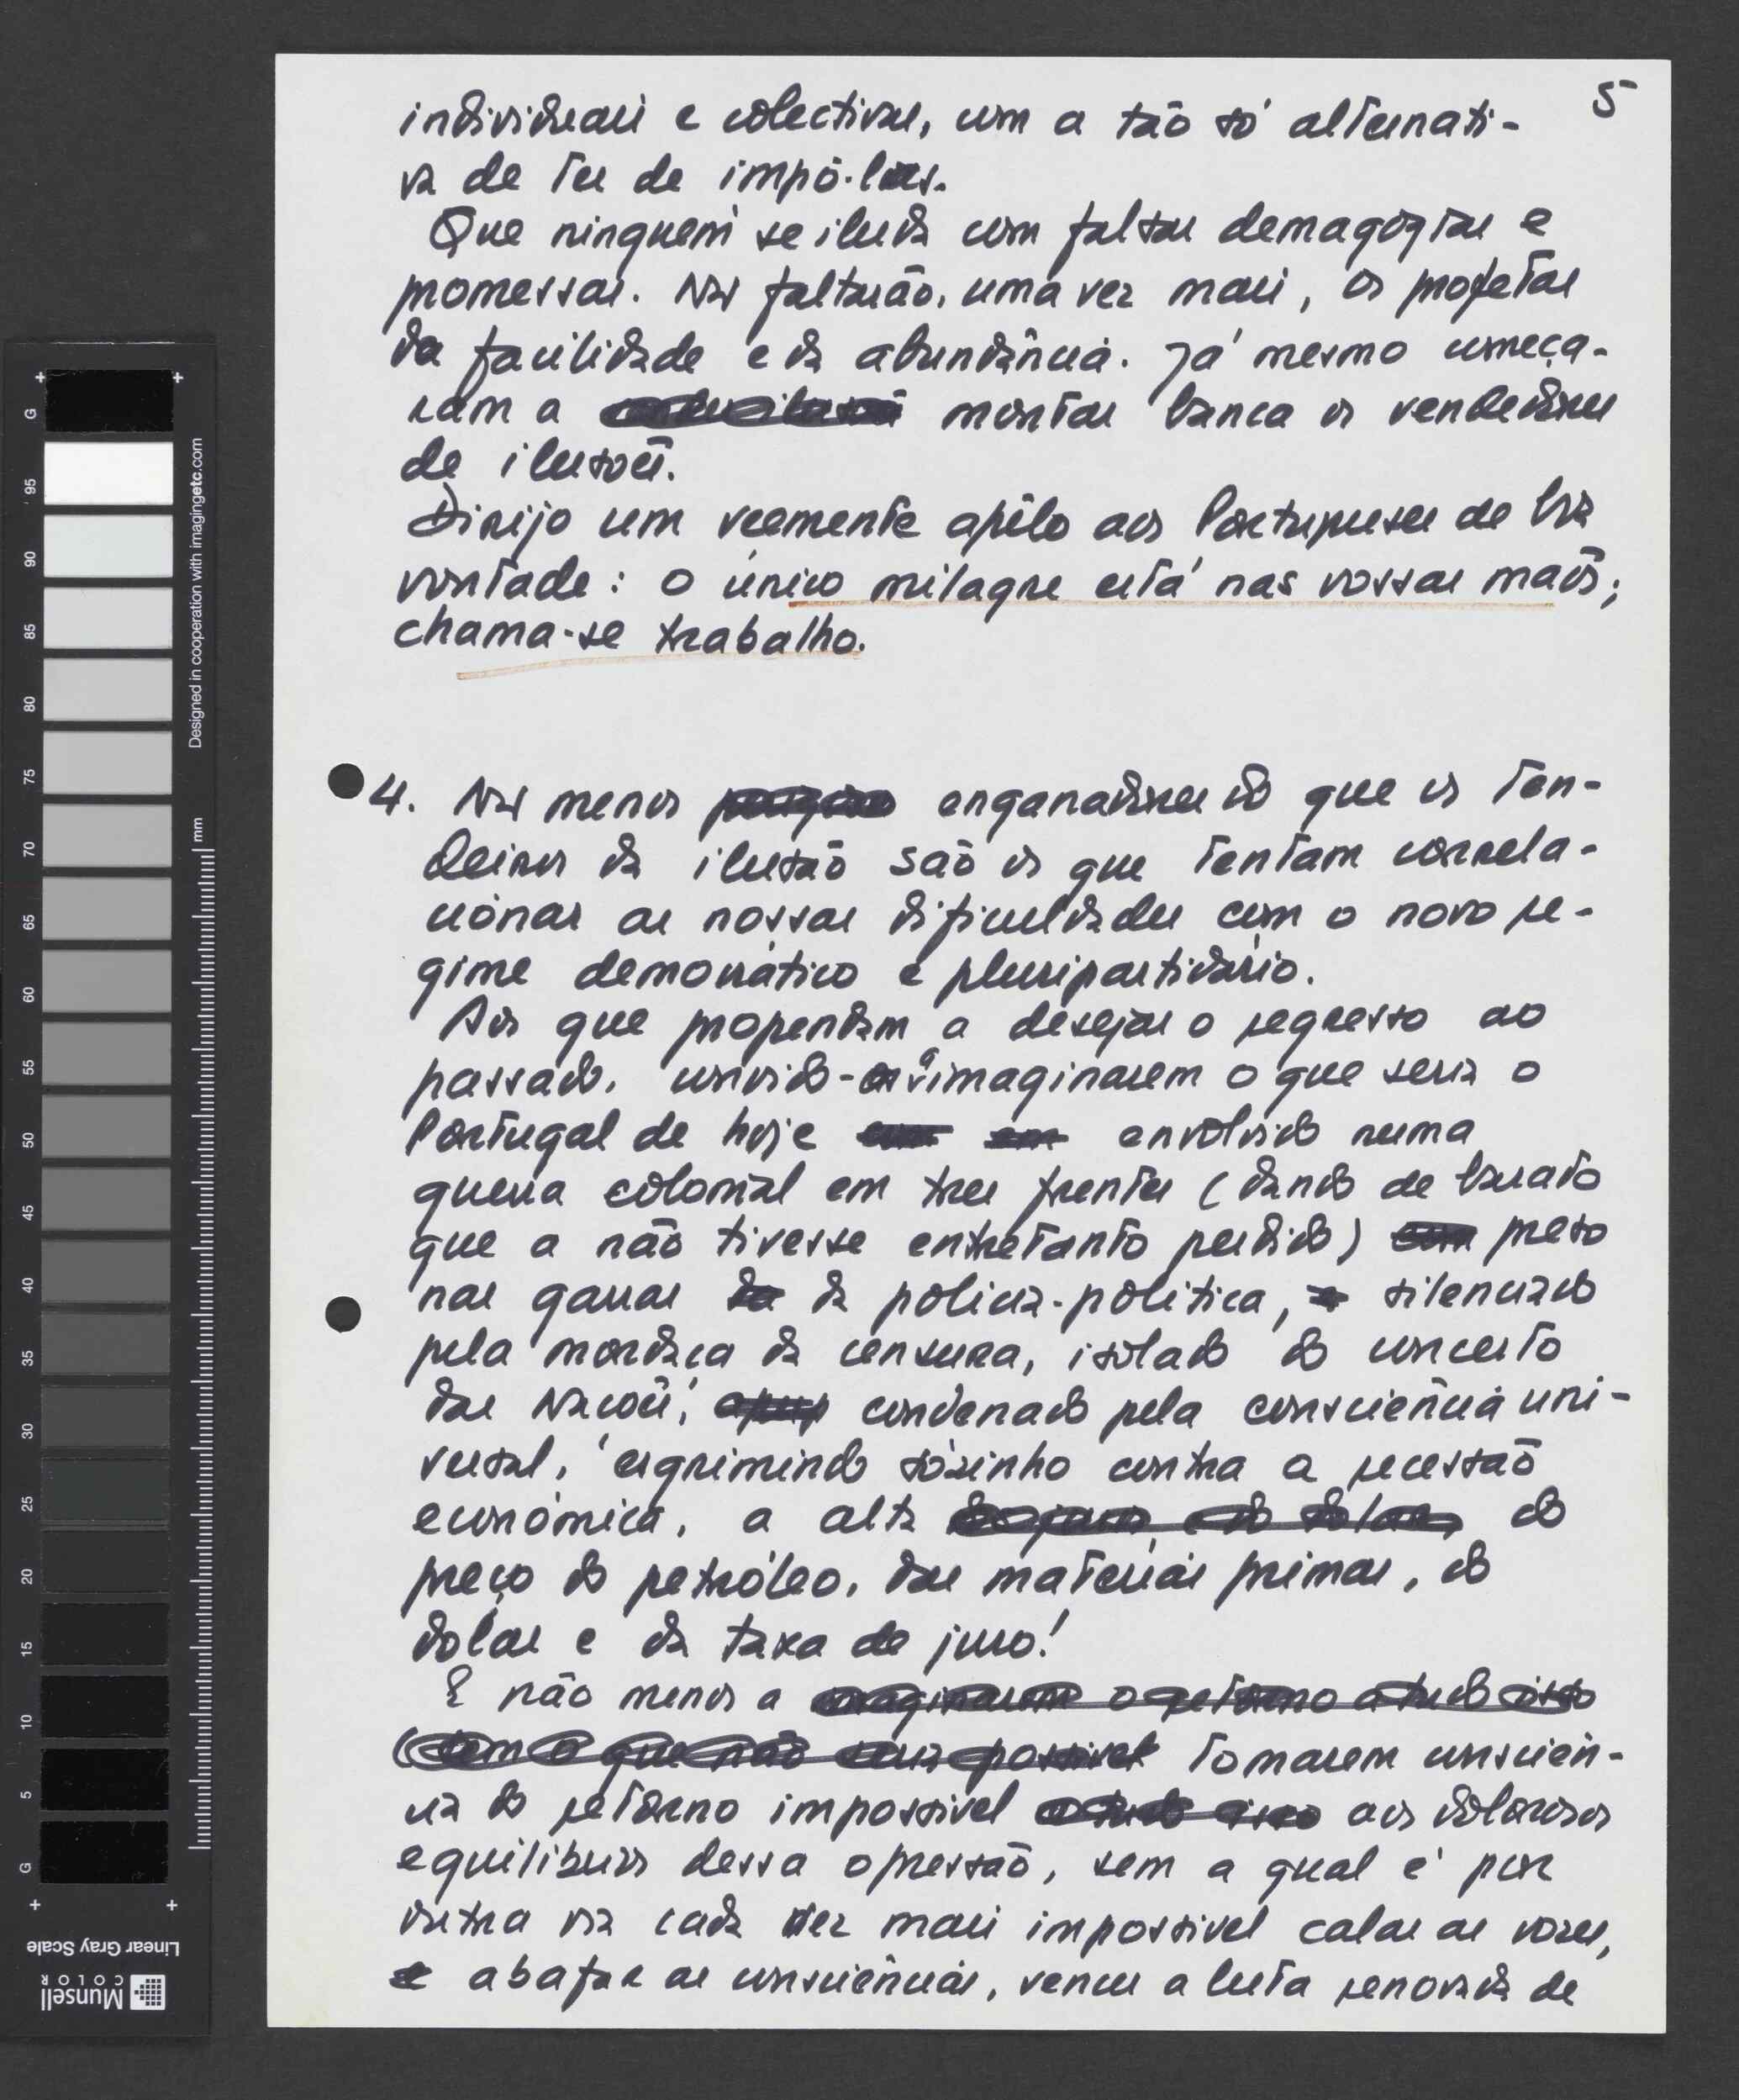 5
individuais e colectivos, com a tão só alternati-
va de ter de impô-los.
Que ninguém se iluda com falsas demagogias e
promessas. Não faltarão, uma vez mais, os profetas
da facilidade e da abundância. Já mesmo começa-
ram a montar banca os vendedores
de ilusões.
Dirijo um veemente apêlo aos Portugueses de boa
vontade: o único milagre está nas vossas mãos;
chama-se trabalho.
4. Não menos enganadores do que os ten-
deiros da ilusão são os que tentam correla-
cionar as nossas dificuldades com o novo re-
gime democrático e pluripartidário.
Aos que propendam a desejar o regresso ao
passado, convido-os a imaginarem o que seria o
Portugal de hoje envolvido numa
guerra colonial em tres frentes (dando de barato
que a não tivesse entretanto perdido) preso
nas garras da polícia-política, silenciado
pela mordaça da censura, isolado do concerto
das Nações, condenado pela consciência uni-
versal, esgrimindo sòzinho contra a recessão
económica, a alta do
preço do petróleo, das matérias primas, do
dolar e da taxa de juro!
E não menos a imaginarem o retorno a tudo isso
(sem o que não seria possível tomarem consciên-
cia do retorno impossível a tudo isso aos dolorosos
equilibrios dessa opressão, sem a qual é por
outra via cada vez mais impossível calar as vozes,
e abafar as consciências, vencer a luta renovada de
Munsell
COLOR
Linear Gray Scale
Designed in cooperation with imagingetc.com
mm
G 95 90 85 80 75 70 65 60 55 50 45 40 35 30 25 20 15 10 5 G